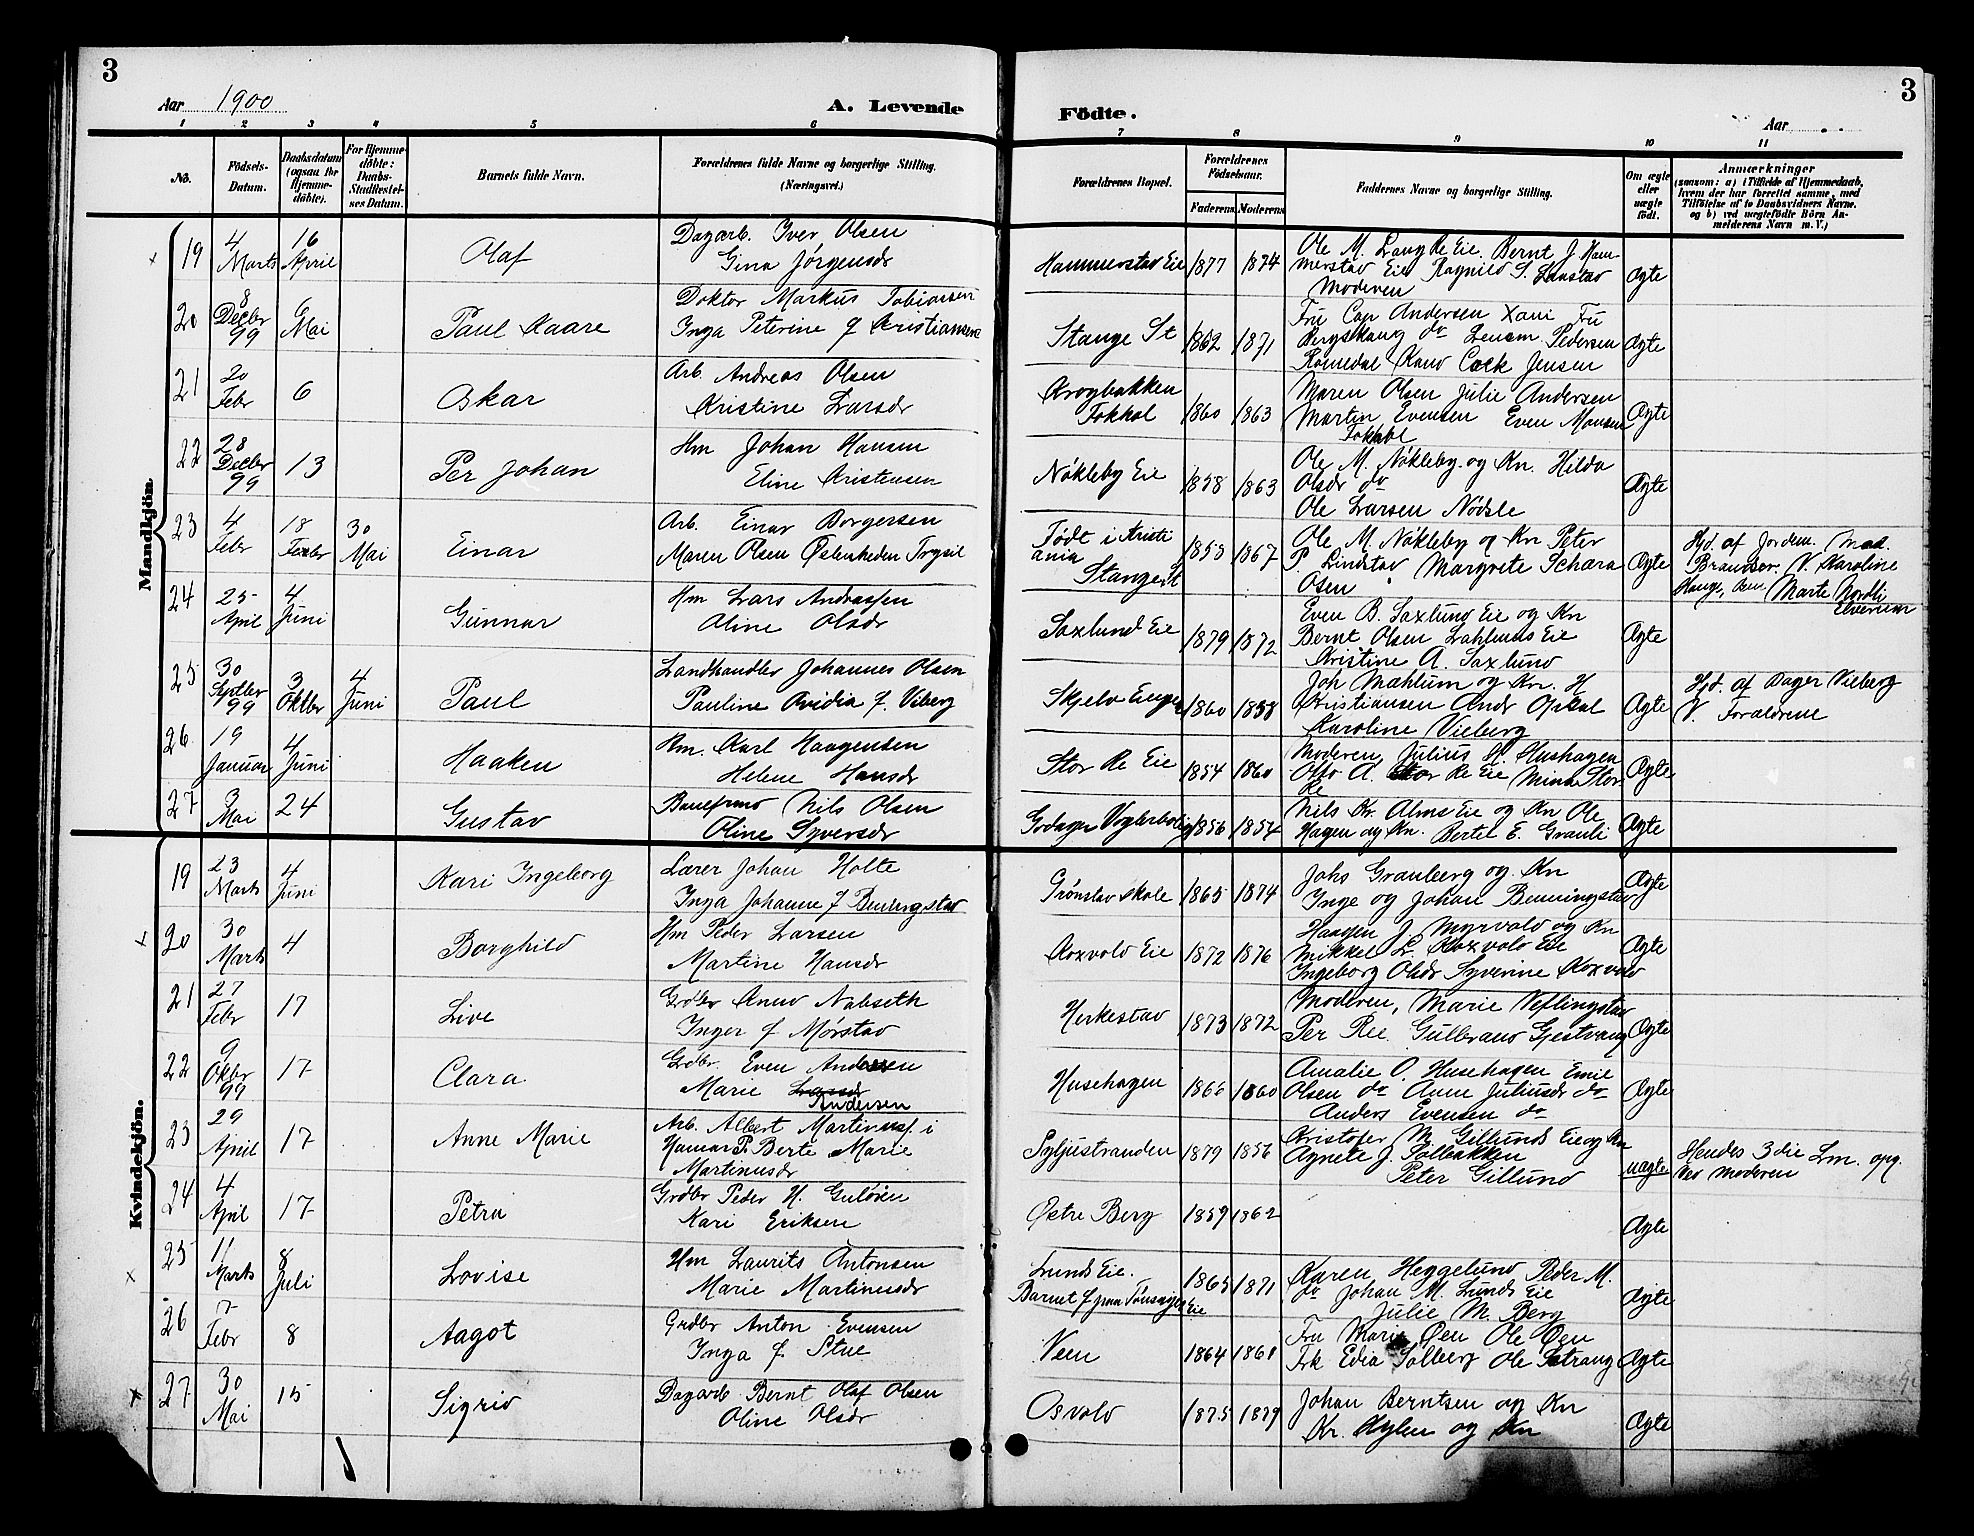 3
Aar 1900
A. Levende
1 2 3 4 5 6
No.
Födsels-
Datum.
Daabsdatum
(ogsaa for
Hjemme-
döbte).
For Hjemme-
döbte:
Daabs-
Stadfæstel-
ses Datum.
Barnets fulde Navn.
Forældrenes fulde Navne og borgerlige Stilling.
(Næringsvei.)
Födte.
3
Aar
7 8 9 10 11
Forældrenes Bopæl.
Forældrenes
Födselsaar.
Faderens Moderens
Faddernes Navne og borgerlige Stilling.
Om ægte
eller
uægte
födt.
Anmærkninger
(saasom: a) i Tilfælde af Hjemmedaab,
hvem der har forrettet samme, med
Tilföielse af to Daabsvidners Navne.
og b) ved uægtefödte Börn An-
melderens Navn m.V.)
Mandkjön.
19 4 Marts 16 April Olaf
Dagarb. Iver Olsen
Gina Jörgensdr
Hammerstad Eie 1877 1874
Ole M. Lang Re Eie. Bernt J. Ham-
merstad Eie Ragnild S. Lanstad
Moderen
Ægte
20 8 Decbr 99 6 Mai Paul Kaare
Doktor Markus Tobiassen
Inga Peterine f Kristiansen
Stange St 1862 1871
Fru Cap Andersen Fru
Bergskaug do Pedersen
Romedal Cock Jensen
Ægte
21 20 Febr 6 Oskar
Arb. Andreas Olsen
Kristine Larsdr
Krogbakken
Fokhol 1860 1863
Maren Olsen Julie Andersen
Martin Evensen Even Monsen
Fokhol
Ægte
22 28 Decbr 99 13 Per Johan
Hm Johan Hansen
Eline Kristensen
Nökleby Eie 1858 1863
Ole M. Nökleby og Kn. Hilda
Olsdr do
Ole Larsen Nödsle
Ægte
23 4 Febr 18 Febr 30 Mai Einar
Arb. Einar Borgersen
Maren Olsen Östenheden Trysil
Födt i Kristi
ania
Stange st 1853 1867
Ole M Nökleby og Kn Peter
P. Lindstad Margrete Schara
Osen
Ægte
Hjd. af Jordem. Mad.
Brandser. V. Karoline
Hauge, Marte Nordli
Elverum
24 25 April 4 Juni Gunnar
Hm Lars Andreassen
Oline Olsdr
Saxlund Eie 1879 1872
Even B. Saxlund Eie og Kn
Bernt Olsen Lahlums Eie
Kristine A. Saxlund
Ægte
25 30 Septbr 99 3 Oktbr 4 Juni Paul
Landhandler Johannes Olsen
Pauline Ovidia f. Viberg
Skjelv Enger 1860 1858
Joh Mæhlum og Kn. H
Kristiansen Andr Opsal
Karoline Vieberg
Ægte
Hjd. af Bager Vieberg
V. Forældrene
26 19 Januar 4 Juni Haaken
Hm. Karl Haagensen
Helene Hansdr
Stor Re Eie 1854 1860
Moderen Julius H Hushagen
Otto A. Stor Re Eie Mina Stor
Re
Ægte
27 3 Mai 24 Gustav
Banefmd Nils Olsen
Oline Syversdr
Godager Vogterbolig 1856 1854
Nils Kr. Alms Eie og Kn Ole
Hagen og Kn. Bertel E. Granli
Ægte
Kvindekjön.
19 23 Marts 4 Juni Kari Ingeborg
Lærer Johan Holte
Inga Johanne f Benningstad
Grönstad skole 1865 1874
Johs Granberg og Kn
Inge og Johan Benningstad
Ægte
20 30 Marts 4 Borghild
Hm Peder Larsen
Martine Hansdr
Koxvold Eie 1872 1876
Haagen J. Myrvold og Kn
Mikkel L. Koxvold Eie
Ingeborg Olsdr Syverine Koxvold
Ægte
21 27 Febr 17 Live
Grdbr Arne Nabseth
Inger f Mörstad
Herkestad 1873 1872
Moderen, Marie Veflingstad
Per Ree Gulbrand Gjestvang
Ægte
22 9 Oktbr 99 17 Clara
Grdbr. Even Andersen
Marie Larsdr
Andersen
Husehagen 1866 1860
Amalie O. Husehagen Emil
Olsen do Anne Juliusdr do
Anders Evensen do
Ægte
23 29 April 17 Anne Marie
Arb. Albert Martinus. i
Hamar P. Berte Marie
Martinusdr
Syljustranden 1879 1856
Kristofer M. Gillunds Eie og Kn
Agnete J. Solbakken
Peter Gillund
uægte
Hendes 3die Lm. opg.
ved Moderen
24 4 April 17 Petra
Grdbr Peder H. Gulöien
Kari Eriksen
Östre Berg 1859 1862
Ægte
25 11 Marts 8 Juli Lovise
Hm Laurits Antonsen
Marie Martinusdr
Lunds Eie.
Barnet f. paa Tönsager Eie 1865 1871
Karen Heggelund Peder M.
do Johan M. Lunds Eie
Julie M. Berg
Ægte
26 7 Febr 8 Aagot
Grdbr Anton Evensen
Inga f. Stue
Veen 1864 1861
Fru Marie Öen Ole Öen
Frk Edia Solberg Ole Sstrang
Ægte
27 30 Mai 15 Sigrid
Dagarb. Bernt Olaf Olsen
Oline Olsdr
Osvold 1875 1879
Johan Berntsen og Kn
Kr. Kylen og Kn
Ægte